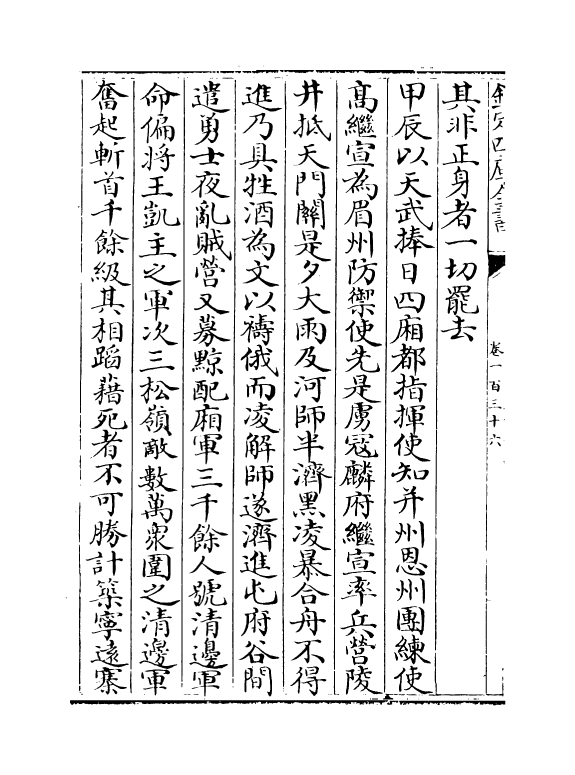 欽定四庫全書
卷一百三十六
其非正身者一切罷去
甲辰以天武捧日四廂都指揮使知并州恩州團練使
高繼宣為眉州防禦使先是虜冦麟府繼宣率兵營陵
井抵天門闗是夕大雨及河師半濟黑凌暴合舟不得
進乃具牲酒為文以禱俄而凌解師遂濟進屯府谷間
遣勇士夜亂賊營又募黥配廂軍三千餘人號清邊軍
命偏將王凱主之軍次三松嶺敵數萬衆圍之清邊軍
奮起斬首千餘級其相蹈藉死者不可勝計築寧遠寨